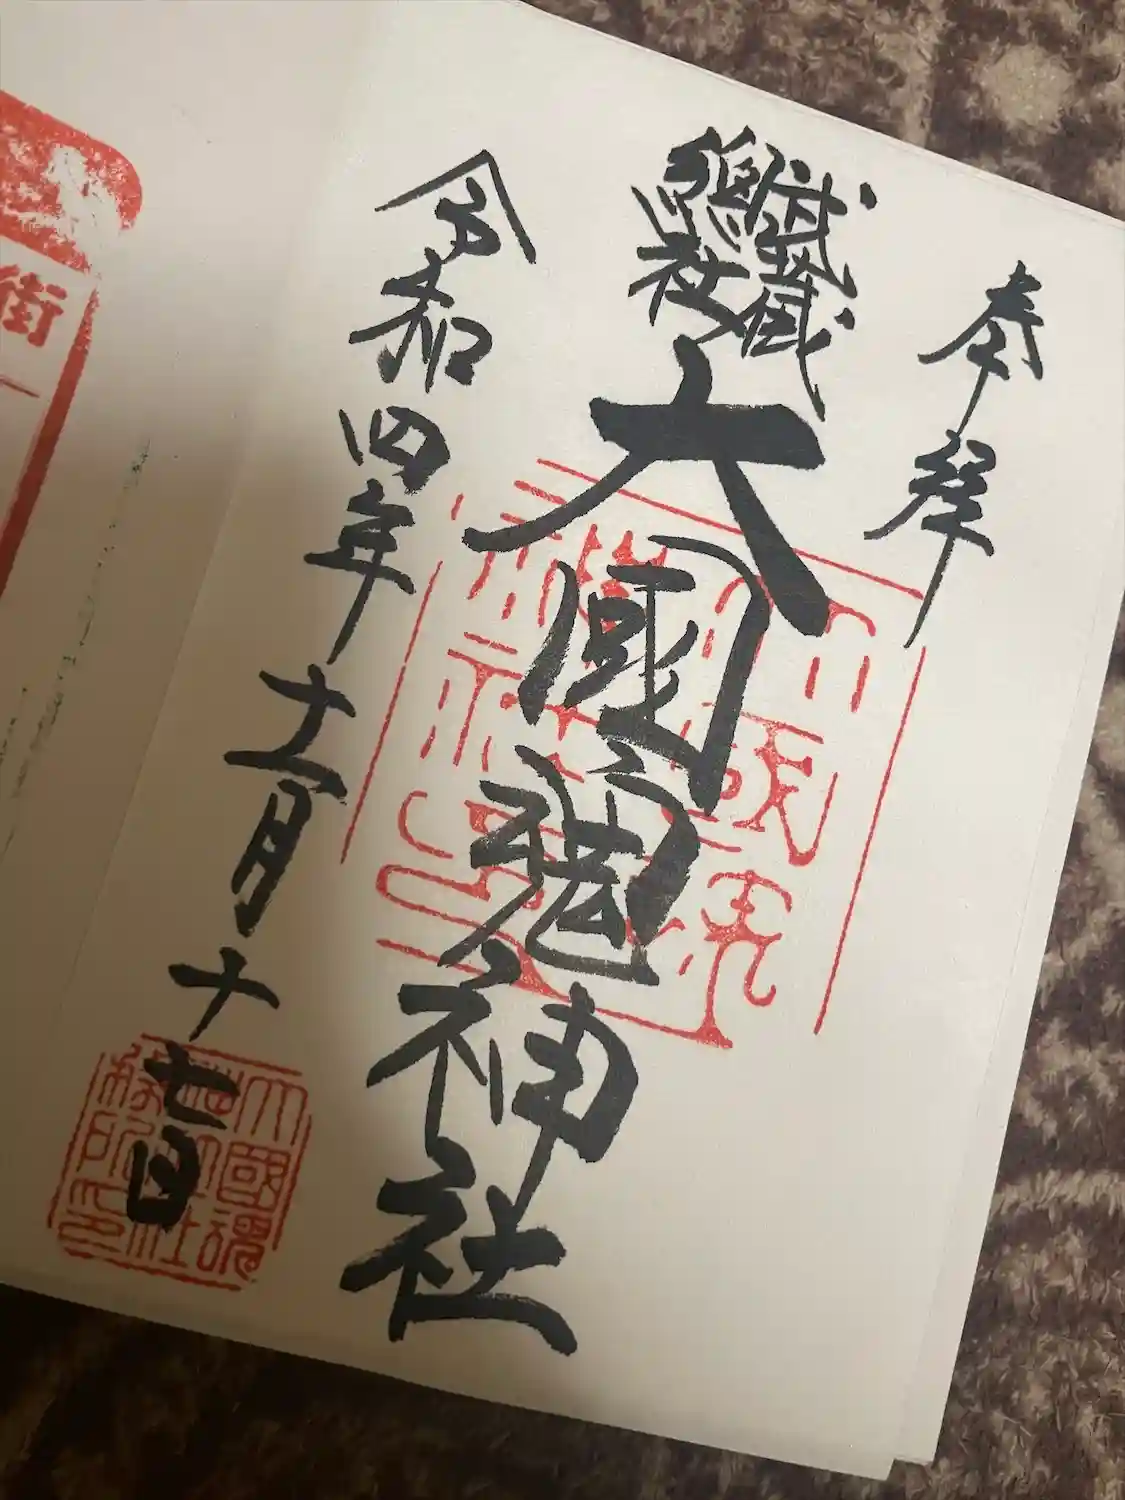 奉拝
武蔵
總社
大國魂神社
令和四年十一月十七日
大國魂
神社
街